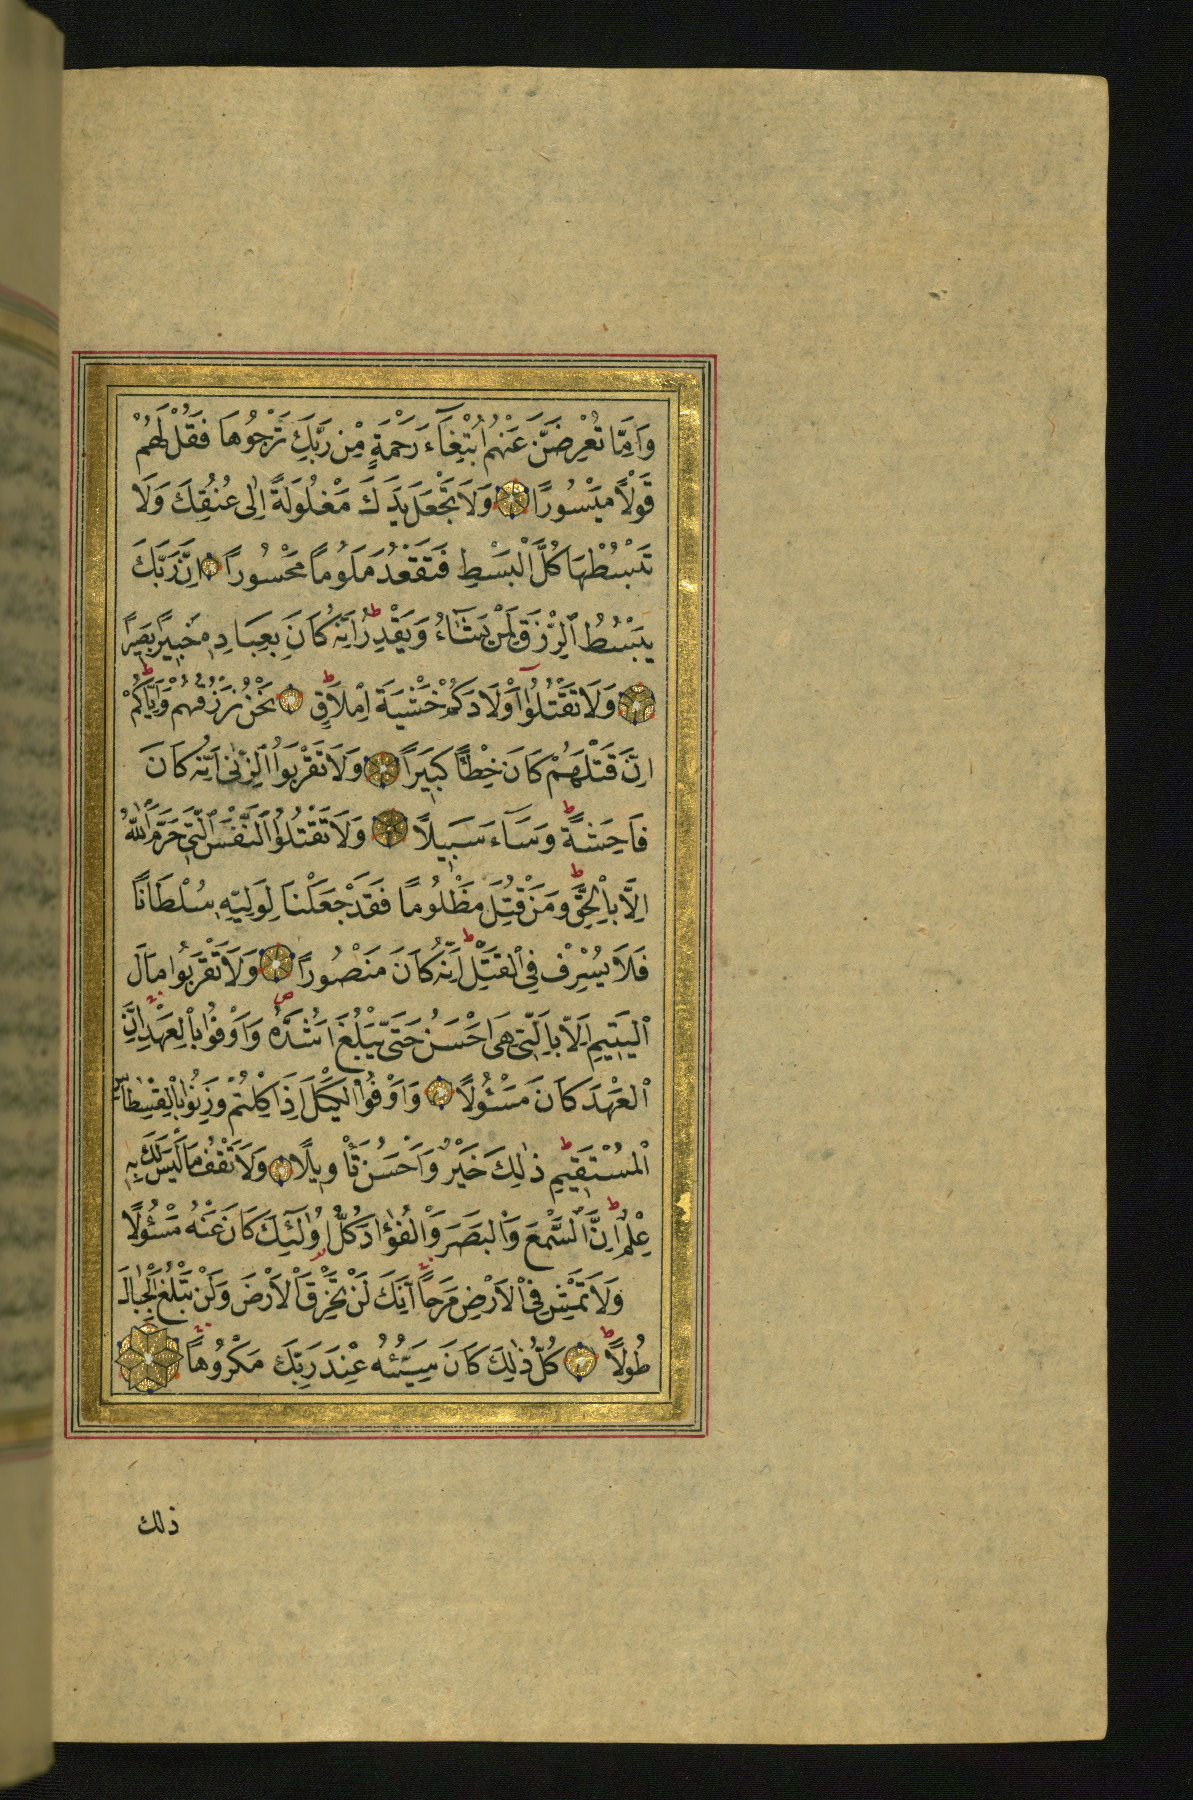 وَاِمَّا تُعْرِضَنَّ عَنْهُمُ ابْتِغَآءَ رَحْمَةٍ مِنْ رَبِّكَ تَرْجُوهَا فَقُلْ لَهُمْ
قَوْلًا مَيْسُورًا وَلَا تَجْعَلْ يَدَكَ مَغْلُولَةً اِلٰى عُنُقِكَ وَلَا
تَبْسُطْهَا كُلَّ الْبَسْطِ فَتَقْعُدَ مَلُومًا مَحْسُورًا اِنَّ رَبَّكَ
يَبْسُطُ الرِّزْقَ لِمَنْ يَشَٓاءُ وَيَقْدِرُ ط اِنَّهُ كَانَ بِعِبَادِهِ خَبِيرًا بَصِيرًا
وَلَا تَقْتُلُٓوا اَوْلَادَكُمْ خَشْيَةَ اِمْلَاقٍ ط نَحْنُ نَرْزُقُهُمْ وَاِيَّاكُمْ ط
اِنَّ قَتْلَهُمْ كَانَ خِطْأً كَبِيرًا وَلَا تَقْرَبُوا الزِّنٰى اِنَّهُ كَانَ
فَاحِشَةً ط وَسَآءَ سَبِيلًا وَلَا تَقْتُلُوا النَّفْسَ الَّتِي حَرَّمَ اللّٰهُ
اِلَّا بِالْحَقِّ ط وَمَنْ قُتِلَ مَظْلُومًا فَقَدْ جَعَلْنَا لِوَلِيِّهِ سُلْطَانًا
فَلَا يُسْرِفْ فِي الْقَتْلِ ط اِنَّهُ كَانَ مَنْصُورًا وَلَا تَقْرَبُوا مَالَ
الْيَتِيمِ اِلَّا بِالَّتِي هِيَ اَحْسَنُ حَتّٰى يَبْلُغَ اَشُدَّهُ ص وَاَوْفُوا بِالْعَهْدِ اِنَّ
الْعَهْدَ كَانَ مَسْئُولًا وَاَوْفُوا الْكَيْلَ اِذَا كِلْتُمْ وَزِنُوا بِالْقِسْطَاسِ
الْمُسْتَقِيمِ ط ذٰلِكَ خَيْرٌ وَاَحْسَنُ تَأْوِيلًا وَلَا تَقْفُ مَا لَيْسَ لَكَ بِهِ
عِلْمٌ ط اِنَّ السَّمْعَ وَالْبَصَرَ وَالْفُؤَادَ كُلُّ اُولٰٓئِكَ كَانَ عَنْهُ مَسْئُولًا
وَلَا تَمْشِ فِي الْاَرْضِ مَرَحًا اِنَّكَ لَنْ تَخْرِقَ الْاَرْضَ وَلَنْ تَبْلُغَ الْجِبَالَ
طُولًا ط كُلُّ ذٰلِكَ كَانَ سَيِّئُهُ عِنْدَ رَبِّكَ مَكْرُوهًا
ذلك